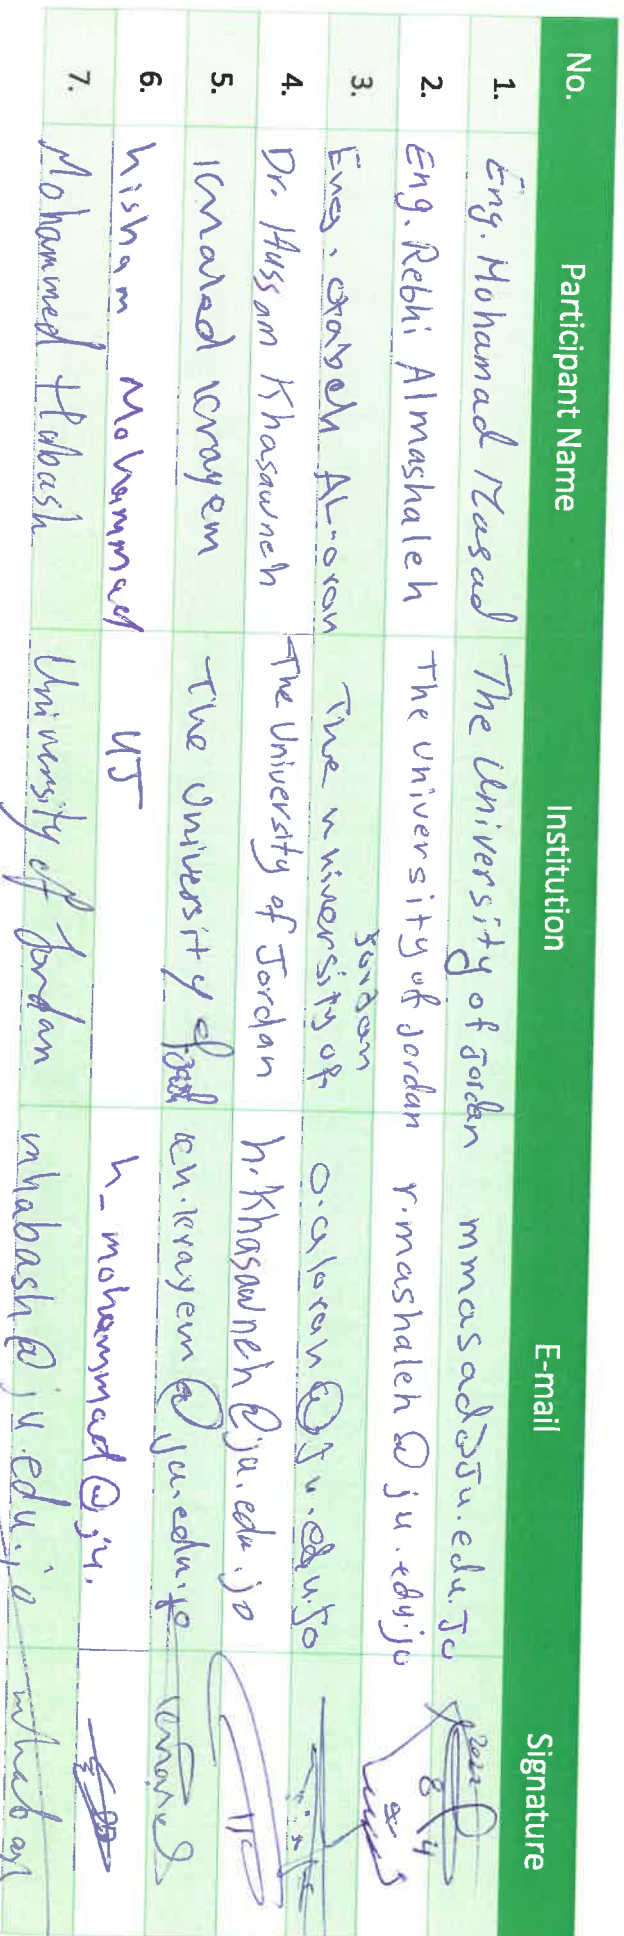 No. Participant Name Institution E-mail Signature
1. Eng. Mohamad Masad The University of Jordan mmasad@Ju.edu.Jo 2022 8 4
2. Eng. Rebhi Almashaleh The University of Jordan r.mashaleh@ju.edu.jo
3. Eng. AL-oran The university of Jordan o.aloran@Ju.edu.Jo
4. Dr. Hussam Khasawneh The University of Jordan h.Khasawneh@ju.edu.jo
5. Khaled krayem The University of kh.krayem@ju.edu.jo
6. hisham Mohammad UJ h_mohammad@ju.
7. Mohammed Habash University of Jordan mhabash@ju.edu.jo